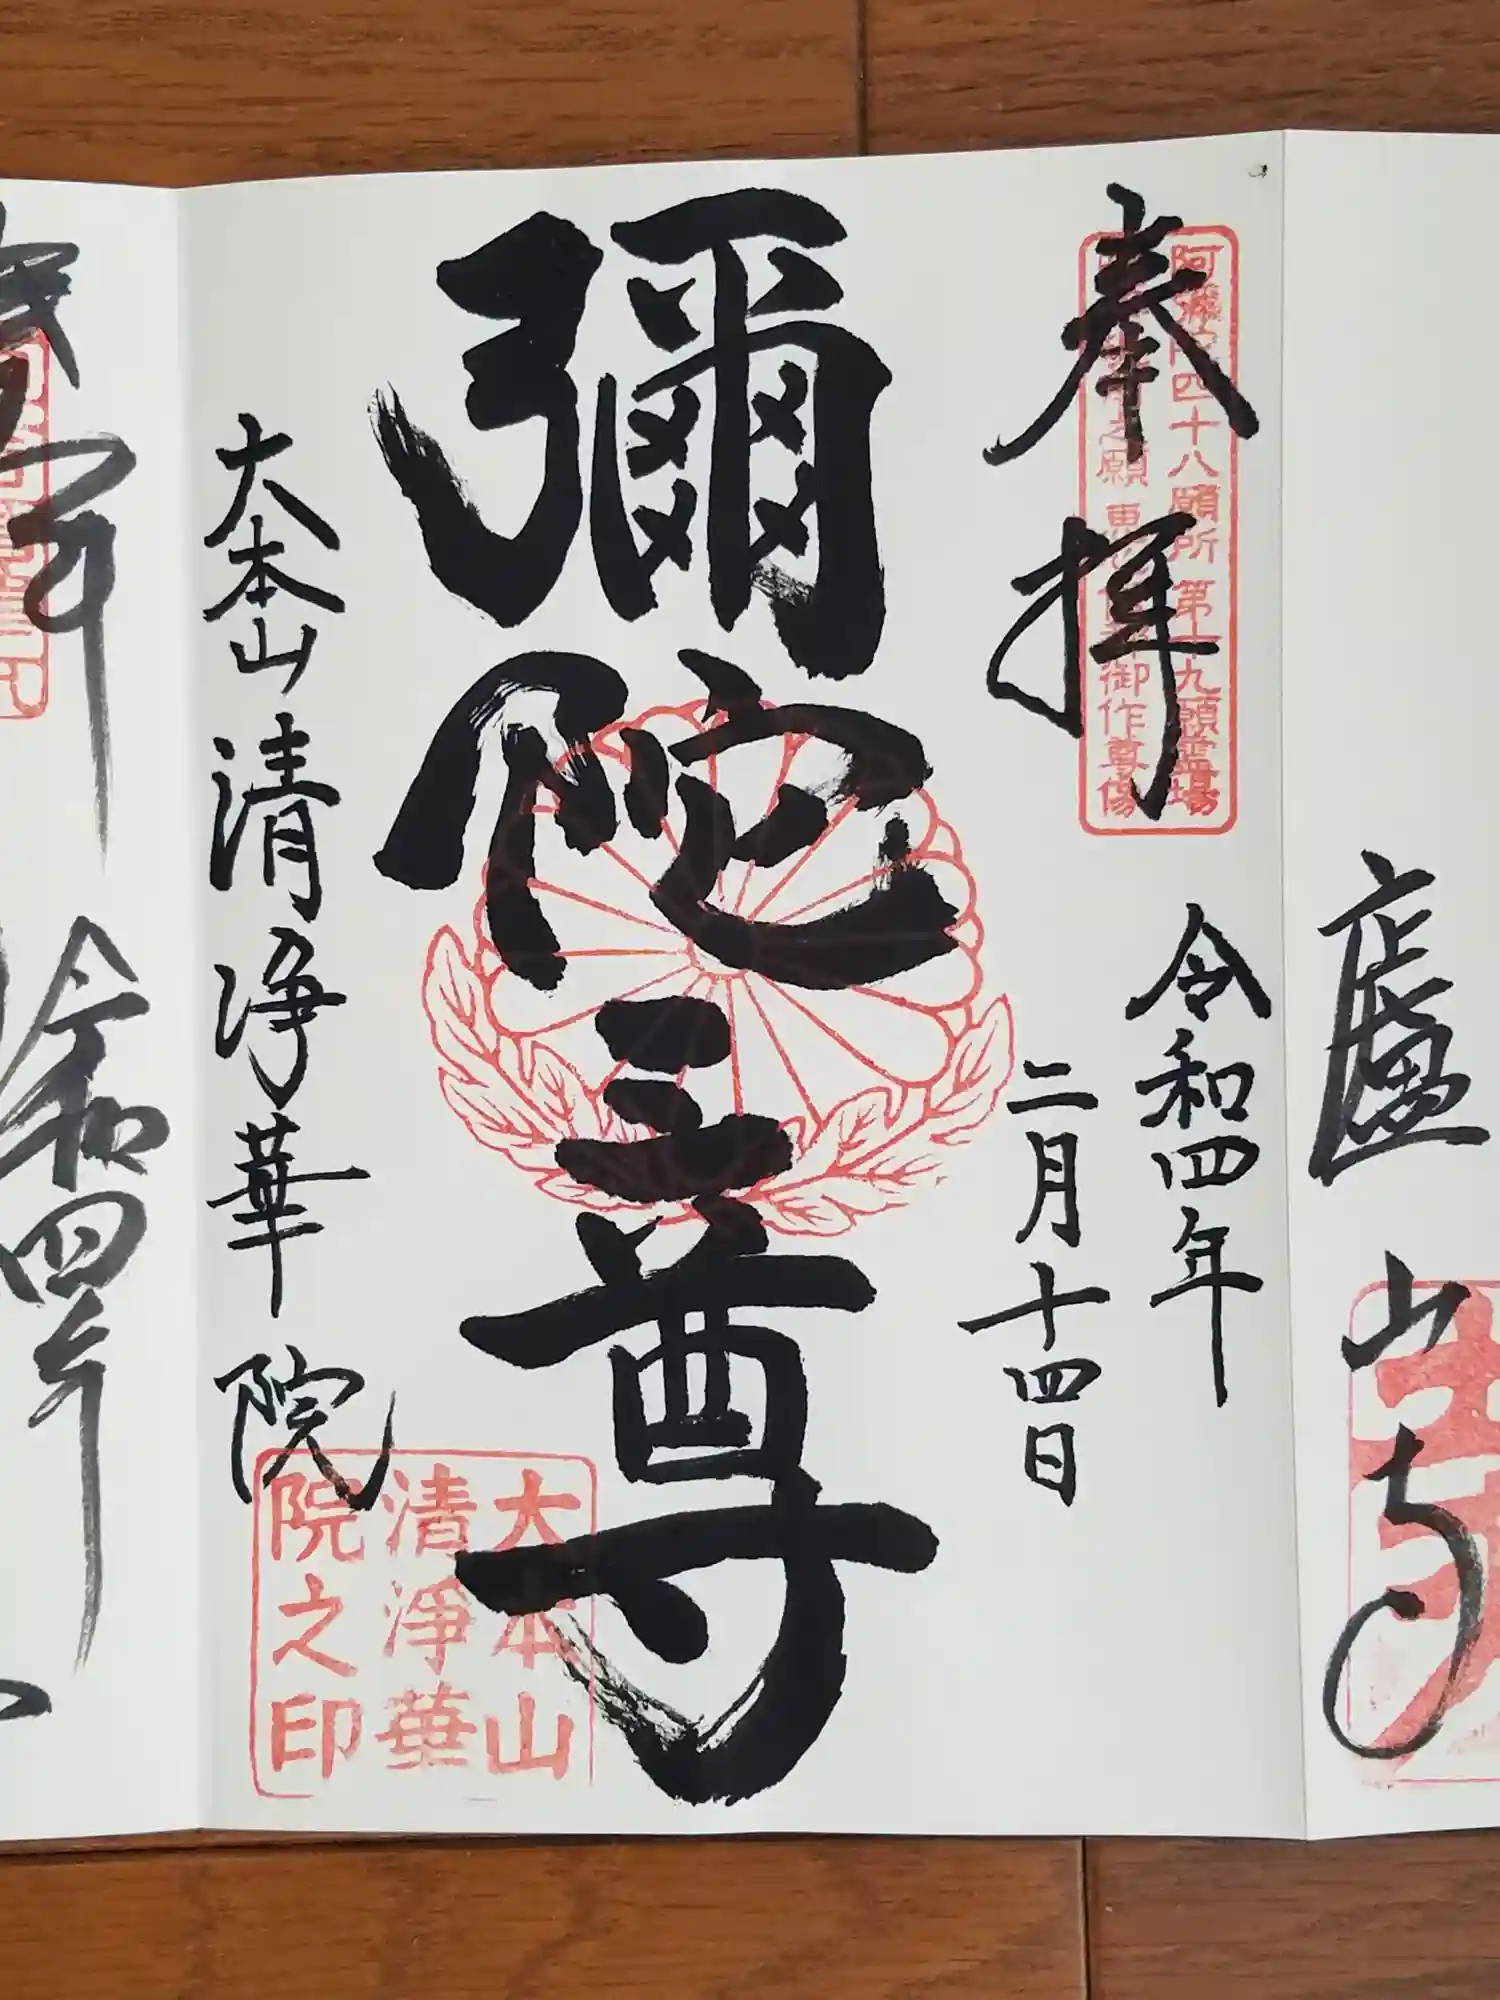 廬山寺
奉拝
阿彌陀四十八願所 第十九願霊場
之願 恵心僧都御作尊像
令和四年
二月十四日
彌陀三尊
大本山清浄華院
大本山
清淨華
院之印
令和四年